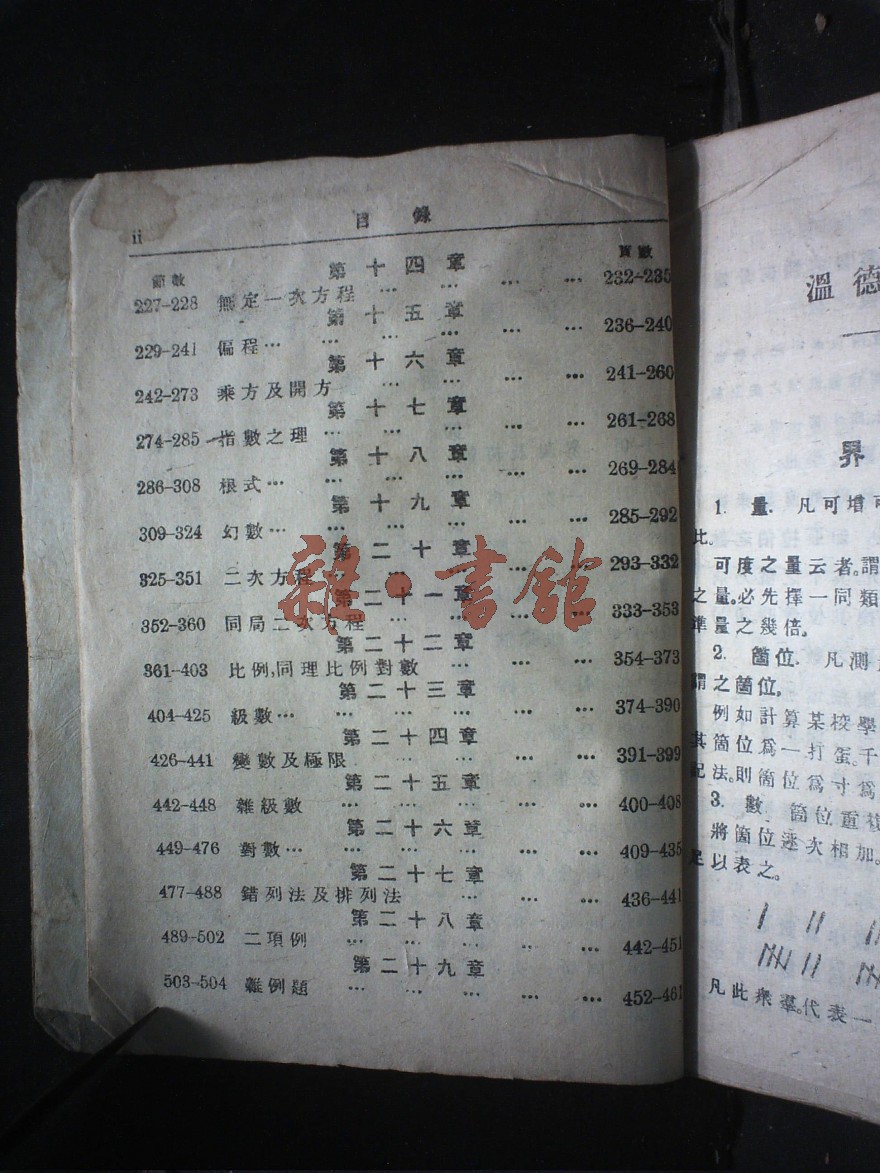 ii
目 錄
節數
頁數
第十四章
227-228 無定一次方程 … … … … 232-235
第十五章
229-241 偏程… … … … … 236-240
第十六章
242-273 乘方及開方 … … … … 241-260
第十七章
274-285 指數之理 … … … … 261-268
第十八章
286-308 根式… … … … … 269-284
第十九章
309-324 幻數… … … … … 285-292
第二十章
325-351 二次方程 … … … … 293-332
第二十一章
352-360 同局二次方程 … … … 333-353
第二十二章
361-403 比例,同理比例對數 … … … 354-373
第二十三章
404-425 級數… … … … … 374-390
第二十四章
426-441 變數及極限 … … … … 391-399
第二十五章
442-448 雜級數 … … … … … 400-408
第二十六章
449-476 對數… … … … … 409-435
第二十七章
477-488 錯列法及排列法 … … … 436-441
第二十八章
489-502 二項例 … … … … … 442-451
第二十九章
503-504 雜例題 … … … … … 452-461
雜·書館
溫德
界
1. 量. 凡可增可
比。
可度之量云者。謂
之量。必先擇一同類
準量之幾倍。
2. 箇位. 凡測
謂之箇位。
例如計算某校學
其箇位爲一打蛋。千
記法。則箇位爲寸爲
3. 數. 箇位重複
將箇位逐次相加。
足以表之。
凡此衆羣。代表一